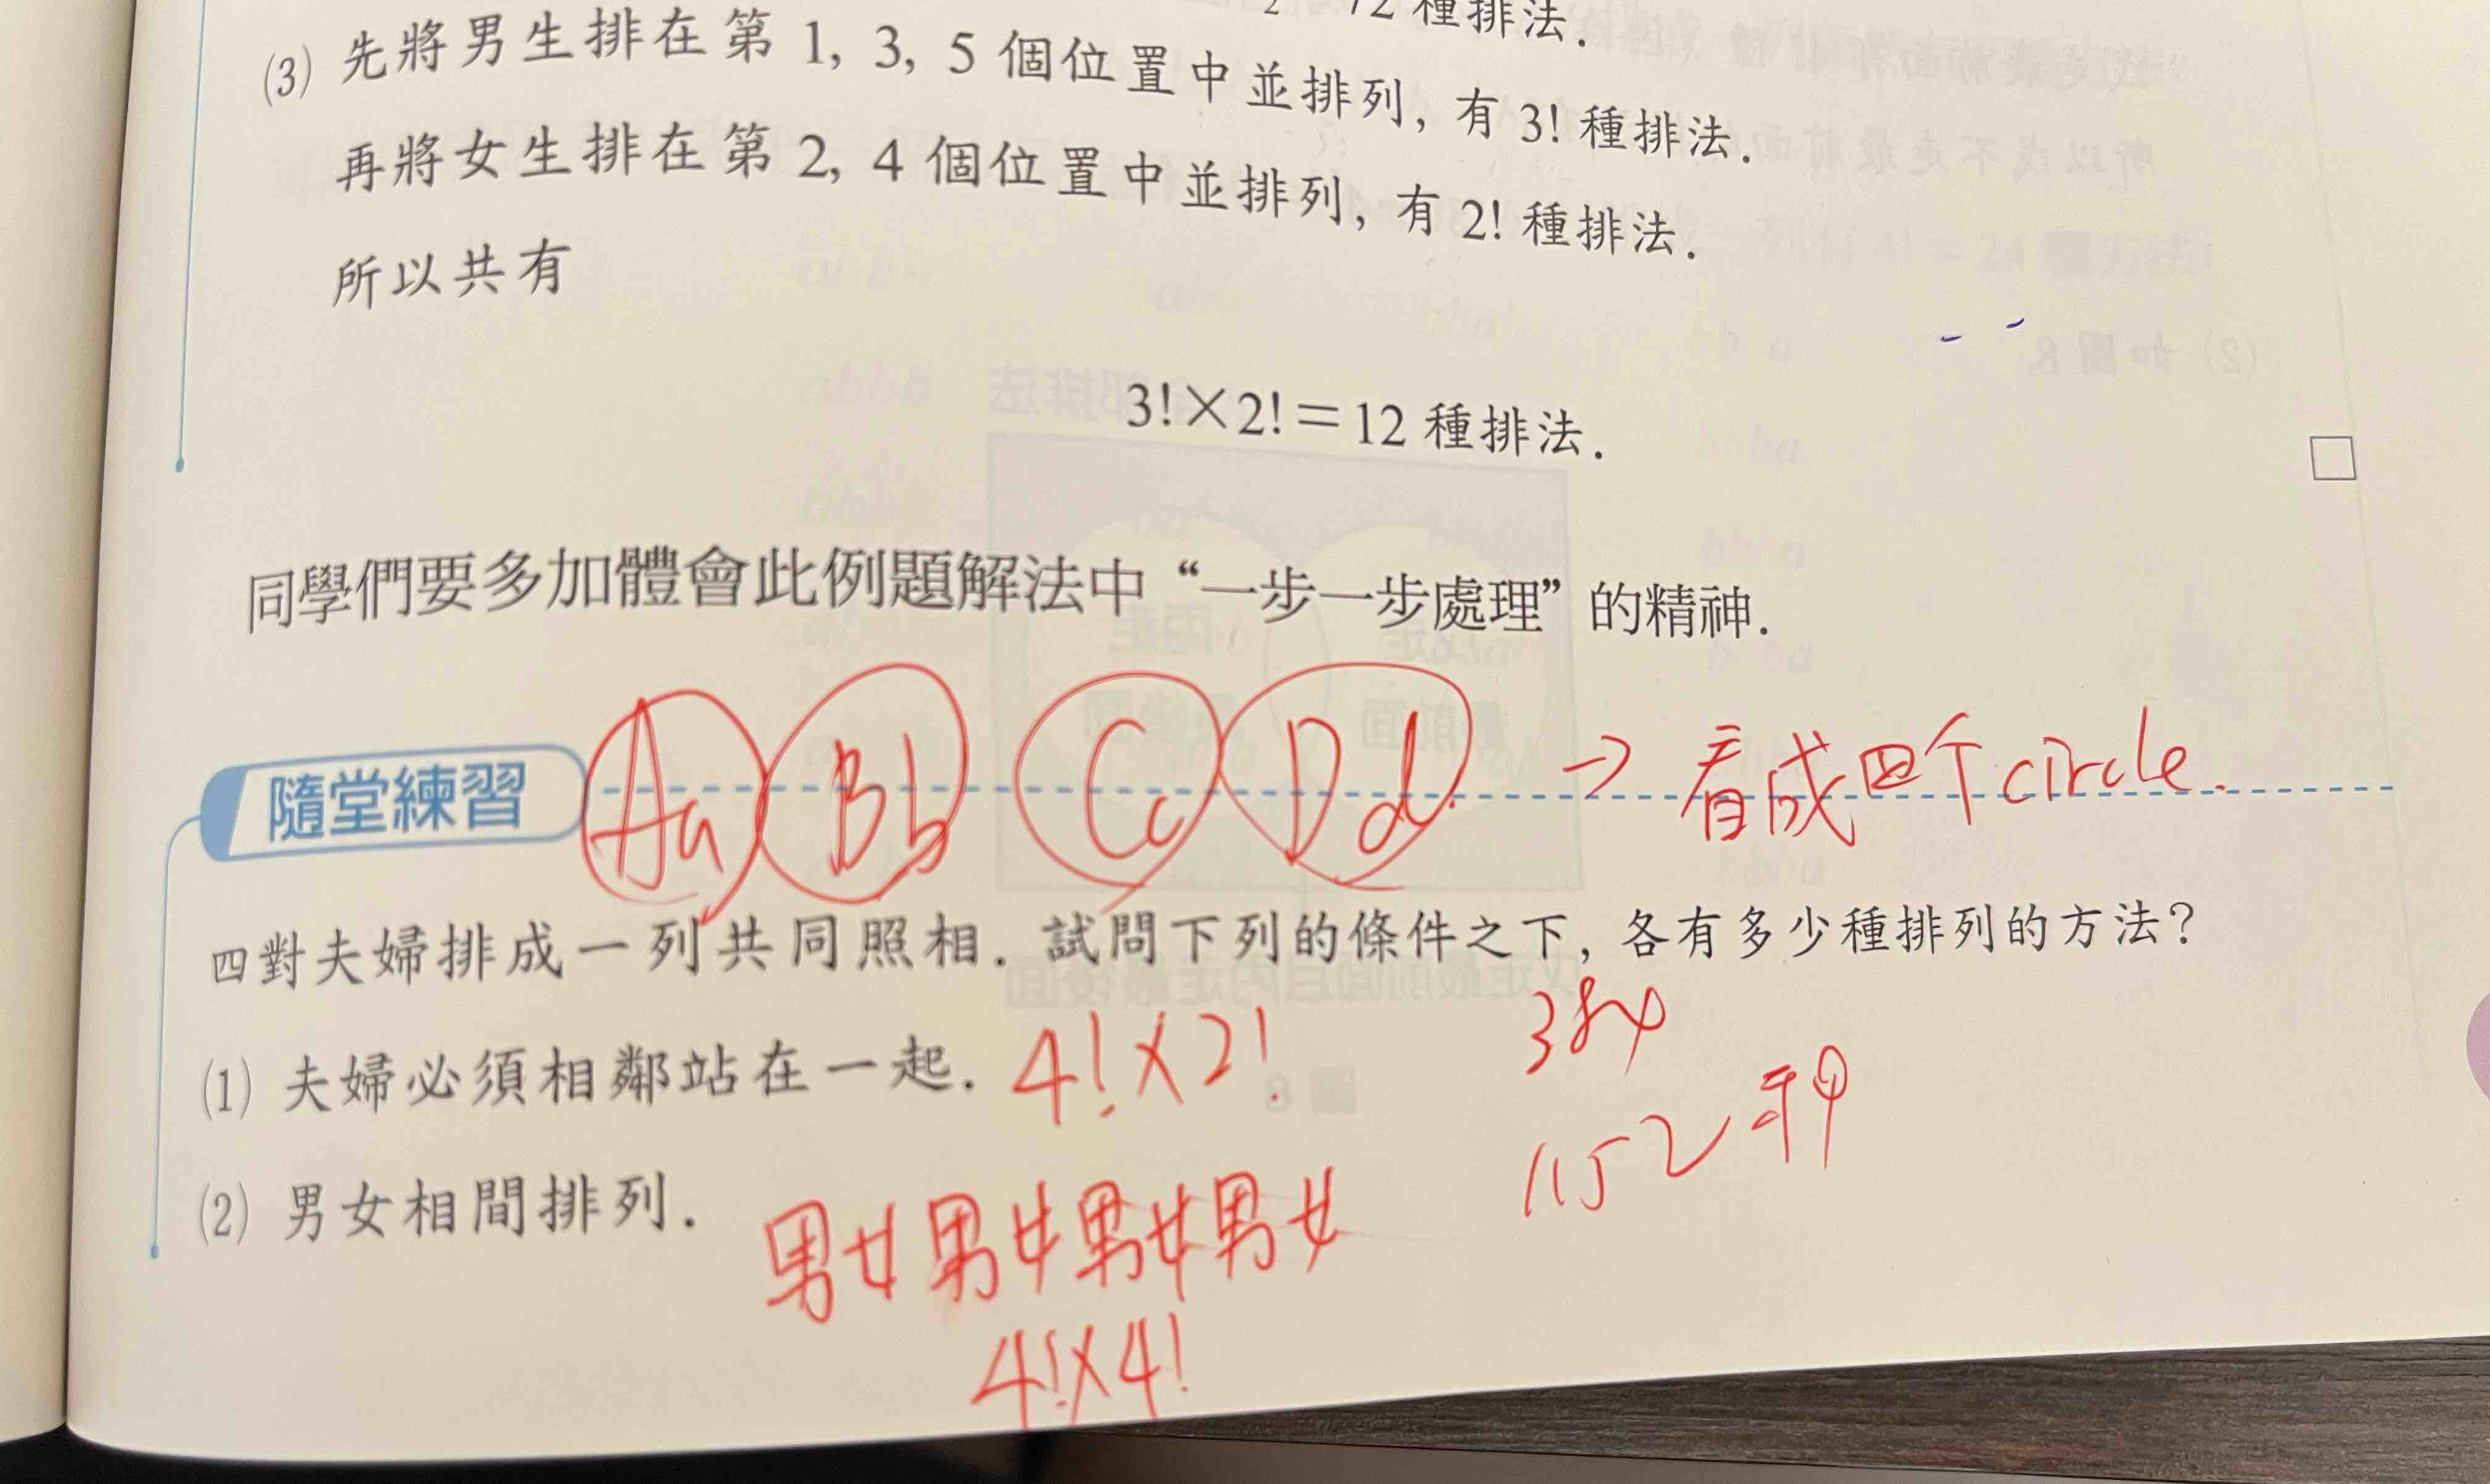 72 種排法.
(3) 先將男生排在第 1, 3, 5 個位置中並排列, 有 3! 種排法.
再將女生排在第 2, 4 個位置中並排列, 有 2! 種排法.
所以共有
3!×2!=12 種排法.
同學們要多加體會此例題解法中“一步一步處理”的精神.
Aa Bb Cc Dd → 看成四个circle.
隨堂練習
四對夫婦排成一列共同照相. 試問下列的條件之下, 各有多少種排列的方法?
(1) 夫婦必須相鄰站在一起. 4!×2!
384
(2) 男女相間排列.
1152种
男女男女男女男女
4!×4!